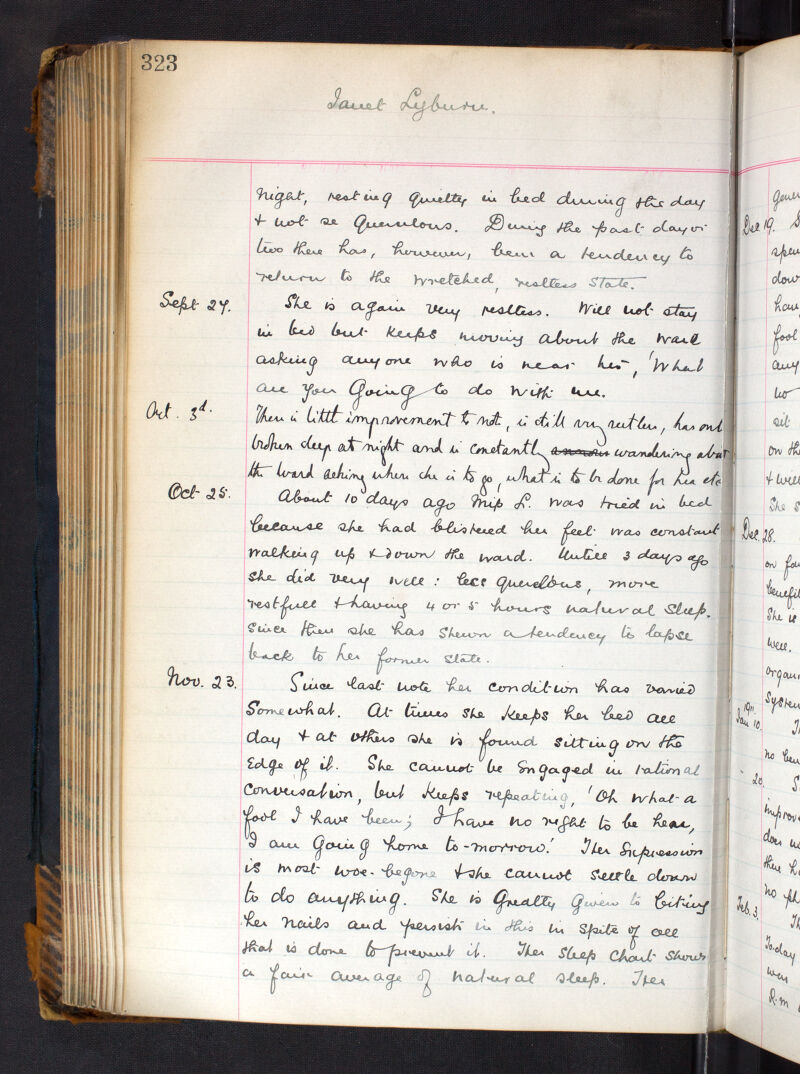 323
Janet Lyburn.
night, resting quietly in bed during the day
& not so querulous. During the past day or
two there has, however, been a tendency to
return to the wretched, restless state.
Sept 24. She is again very restless. Will not stay
in bed but keeps moving about the ward
asking anyone who is near her, 'What
are you going to do with me.
Oct. 3d. There is little improvement to note, is still very restless, has only
broken sleep at night and is constantly wandering about
the ward asking where she is to go, what is to be done for her etc
Oct 25. About 10 days ago Miss L. was tried in bed
because she had blistered her feet was constant
walking up & down the ward. Untill 3 days ago
she did very well: less querulous, more
restfull & having 4 or 5 hours natural sleep.
Since then she has shewn a tendency to lapse
back to her former state.
Nov. 23. Since last note her condition has varied
somewhat. At times she keeps her bed all
day & at others she is found sitting on the
edge of it. She cannot be engaged in rational
conversation, but keeps repeating, 'Oh what a
fool I have been; I have no right to be here,
I am going home to-morrow.' Her expression
is most woe-begone & she cannot settle down
to do anything. She is greatly given to biting
her nails and persists in this in spite of all
that is done to prevent it. Her sleep chart shows
a fair average of natural sleep. Her
Dec 19.
fool
any
sit
on the
& well
She
Dec. 28.
She is
well.
1911
Jan 10.
20.
no
Feb. 3.
To-day
was